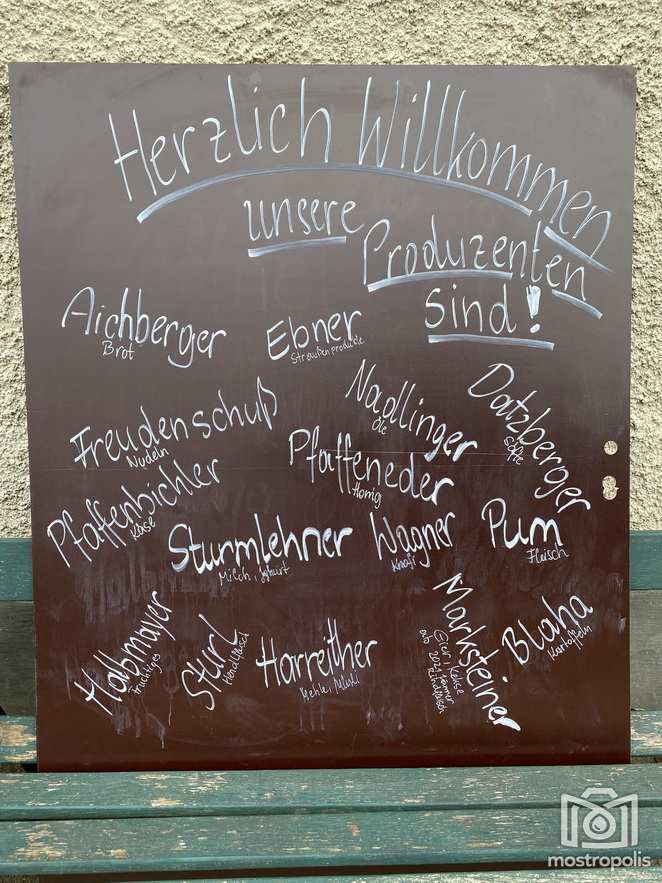 Herzlich Willkommen
unsere
Produzenten
sind!
Aichberger
Brot
Ebner
Straußenprodukte
Nadlinger
Öle
Datzberger
Säfte
Freudenschuß
Nudeln
Pfaffeneder
Honig
Pfaffenbichler
Käse
Sturmlehner
Milch, Joghurt
Wagner
Pum
Fleisch
Halbmayer
Fruchtiges
Sturl
Harreither
Mehle, Müsli
Marksteiner
Eier, Kekse
ab 2021 Jänner
Rindfleisch
Blaha
Kartoffeln
mostropolis